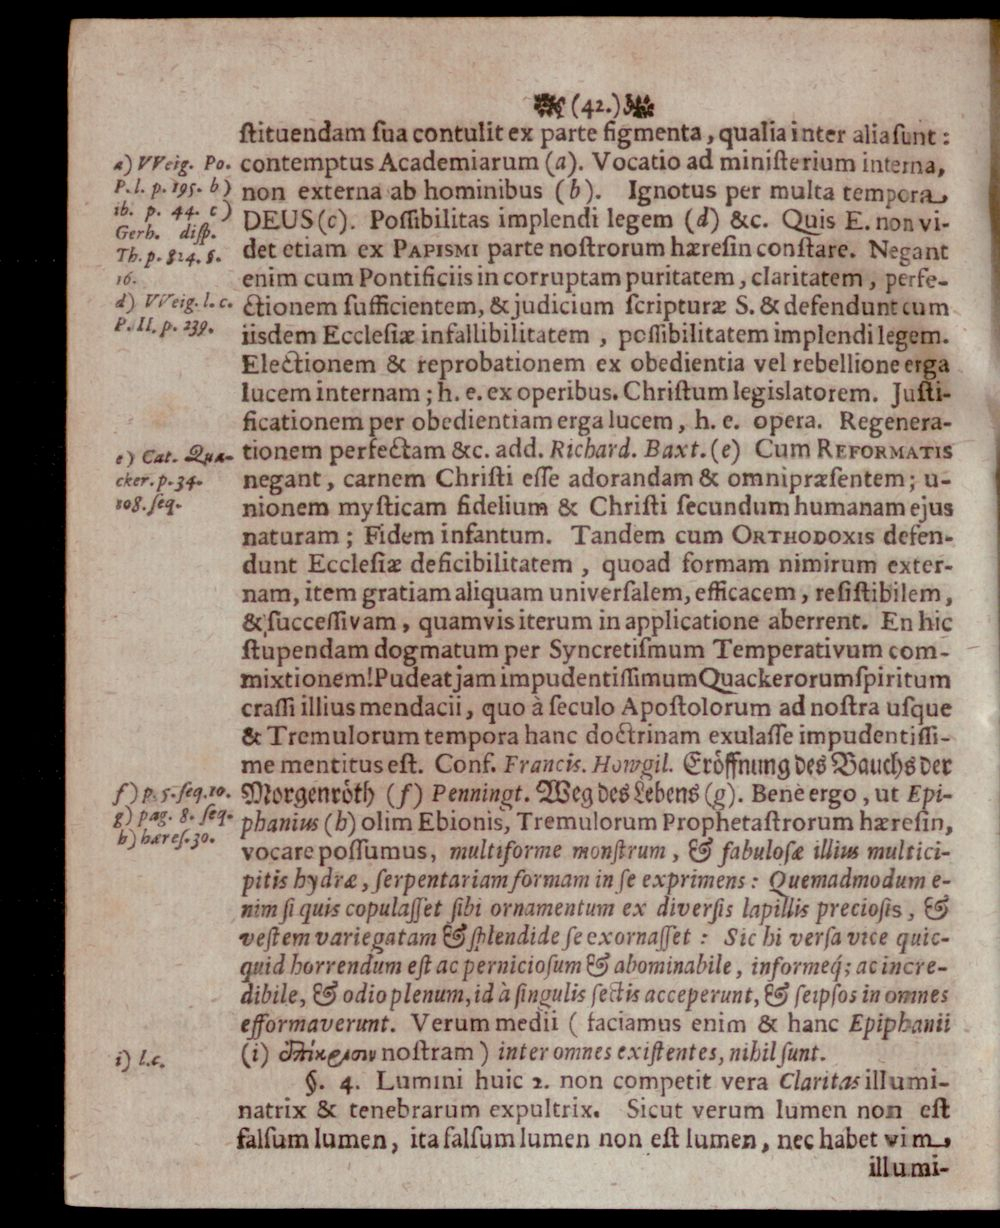 (42.)
ſtituendam ſua contulit ex parte figmenta, qualia inter alia ſunt:
contemptus Academiarum (a). Vocatio ad miniſterium interna,
non externa ab hominibus (b). Ignotus per multa tempora
DEUS (c). Poſſibilitas implendi legem (d) &c. Quis E. non vi-
det etiam ex PAPISMI parte noſtrorum hæreſin conſtare. Negant
enim cum Pontificiis in corruptam puritatem, claritatem, perfe-
ctionem ſufficientem, & judicium ſcripturæ S. & defendunt cum
iisdem Eccleſiæ infallibilitatem, poſſibilitatem implendi legem.
Electionem & reprobationem ex obedientia vel rebellione erga
lucem internam; h. e. ex operibus. Chriſtum legislatorem. Juſti-
ficationem per obedientiam erga lucem, h. e. opera. Regenera-
tionem perfectam &c. add. Richard. Baxt. (e) Cum REFORMATIS
negant, carnem Chriſti eſſe adorandam & omnipræſentem; u-
nionem myſticam fidelium & Chriſti ſecundum humanam ejus
naturam; Fidem infantum. Tandem cum ORTHODOXIS defen-
dunt Eccleſiæ deficibilitatem, quoad formam nimirum exter-
nam, item gratiam aliquam univerſalem, efficacem, reſiſtibilem,
& ſucceſſivam, quamvis iterum in applicatione aberrent. En hic
ſtupendam dogmatum per Syncretiſmum Temperativum com-
mixtionem! Pudeat jam impudentiſſimum Quackerorum ſpiritum
craſſi illius mendacii, quo à ſeculo Apoſtolorum ad noſtra uſque
& Tremulorum tempora hanc doctrinam exulaſſe impudentiſſi-
me mentitus eſt. Conf. Francis. Howgil. Eröffnung des Bauchs der
Morgenröth (f) Penningt. Weg des Lebens (g). Benè ergo, ut Epi-
phanius (h) olim Ebionis, Tremulorum Prophetaſtrorum hæreſin,
vocare poſſumus, multiforme monſtrum, & fabuloſæ illius multici-
pitis hydræ, ſerpentariam formam in ſe exprimens: Quemadmodum e-
nim ſi quis copulaſſet ſibi ornamentum ex diverſis lapillis precioſis, &
veſtem variegatam & ſplendide ſe exornaſſet: Sic hi verſa vice quic-
quid horrendum eſt ac pernicioſum & abominabile, informeq́; ac incre-
dibile, & odio plenum, id à ſingulis ſectis acceperunt, & ſeipſos in omnes
efformaverunt. Verum medii (faciamus enim & hanc Epiphanii
(i) ἐπίκρισιν noſtram) inter omnes exiſtentes, nihil ſunt.
§. 4. Lumini huic 2. non competit vera Claritas illumi-
natrix & tenebrarum expultrix. Sicut verum lumen non eſt
falſum lumen, ita falſum lumen non eſt lumen, nec habet vim
illumi-
a) VVeig. Po.
P. l. p. 195. b)
ib. p. 44. c)
Gerh. diſp.
Th. p. 824. §.
16.
d) VVeig. l. c.
P. II. p. 239.
e) Cat. Qua-
cker. p. 34.
108. ſeq.
f) p. 5. ſeq. 10.
g) pag. 8. ſeq.
h) hæreſ. 30.
i) l. c.